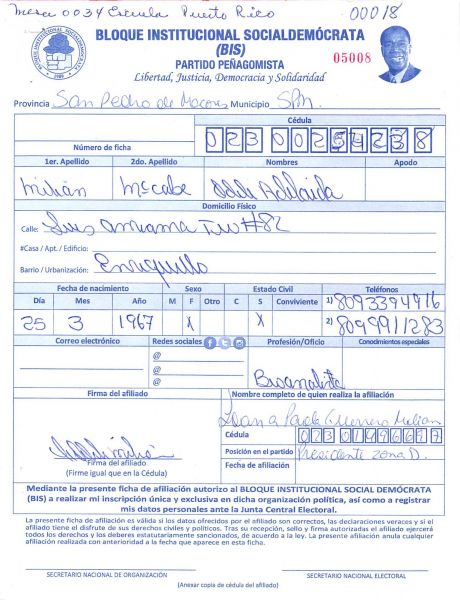 Mesa 0034 Escuela Puerto Rico 00018
BLOQUE INSTITUCIONAL SOCIALDEMÓCRATA
(BIS)
05008
PARTIDO PEÑAGOMISTA
Libertad, Justicia, Democracia y Solidaridad
Provincia San Pedro de Macorís Municipio SPM.
Cédula
Número de ficha 023 0025423 8
1er. Apellido 2do. Apellido Nombres Apodo
Milián Mccabe Adelaida
Domicilio Físico
Calle: Luis Amiama Tió #82
#Casa / Apt. / Edificio:
Barrio / Urbanización: Enriquillo
Fecha de nacimiento Sexo Estado Civil Teléfonos
Día Mes Año M F Otro C S Conviviente 1) 8093394916
25 3 1967 X X 2) 8099911283
Correo electrónico Redes sociales Profesión/Oficio Conocimientos especiales
@
@
@
Bioanalista
Firma del afiliado Nombre completo de quien realiza la afiliación
Paola Guerrero Milian
Cédula 02301496677
Posición en el partido Presidente zona D.
Fecha de afiliación
Firma del afiliado
(Firme igual que en la Cédula)
Mediante la presente ficha de afiliación autorizo al BLOQUE INSTITUCIONAL SOCIAL DEMÓCRATA
(BIS) a realizar mi inscripción única y exclusiva en dicha organización política, así como a registrar
mis datos personales ante la Junta Central Electoral.
La presente ficha de afiliación es válida si los datos ofrecidos por el afiliado son correctos, las declaraciones veraces y si el
afiliado tiene el disfrute de sus derechos civiles y políticos. Tras su recepción, sello y firma autorizados el afiliado ejercerá
todos los derechos y los deberes estatutariamente sancionados, de acuerdo a la ley. La presente afiliación anula cualquier
afiliación realizada con anterioridad a la fecha que aparece en esta ficha.
SECRETARIO NACIONAL DE ORGANIZACIÓN SECRETARIO NACIONAL ELECTORAL
(Anexar copia de cédula del afiliado)